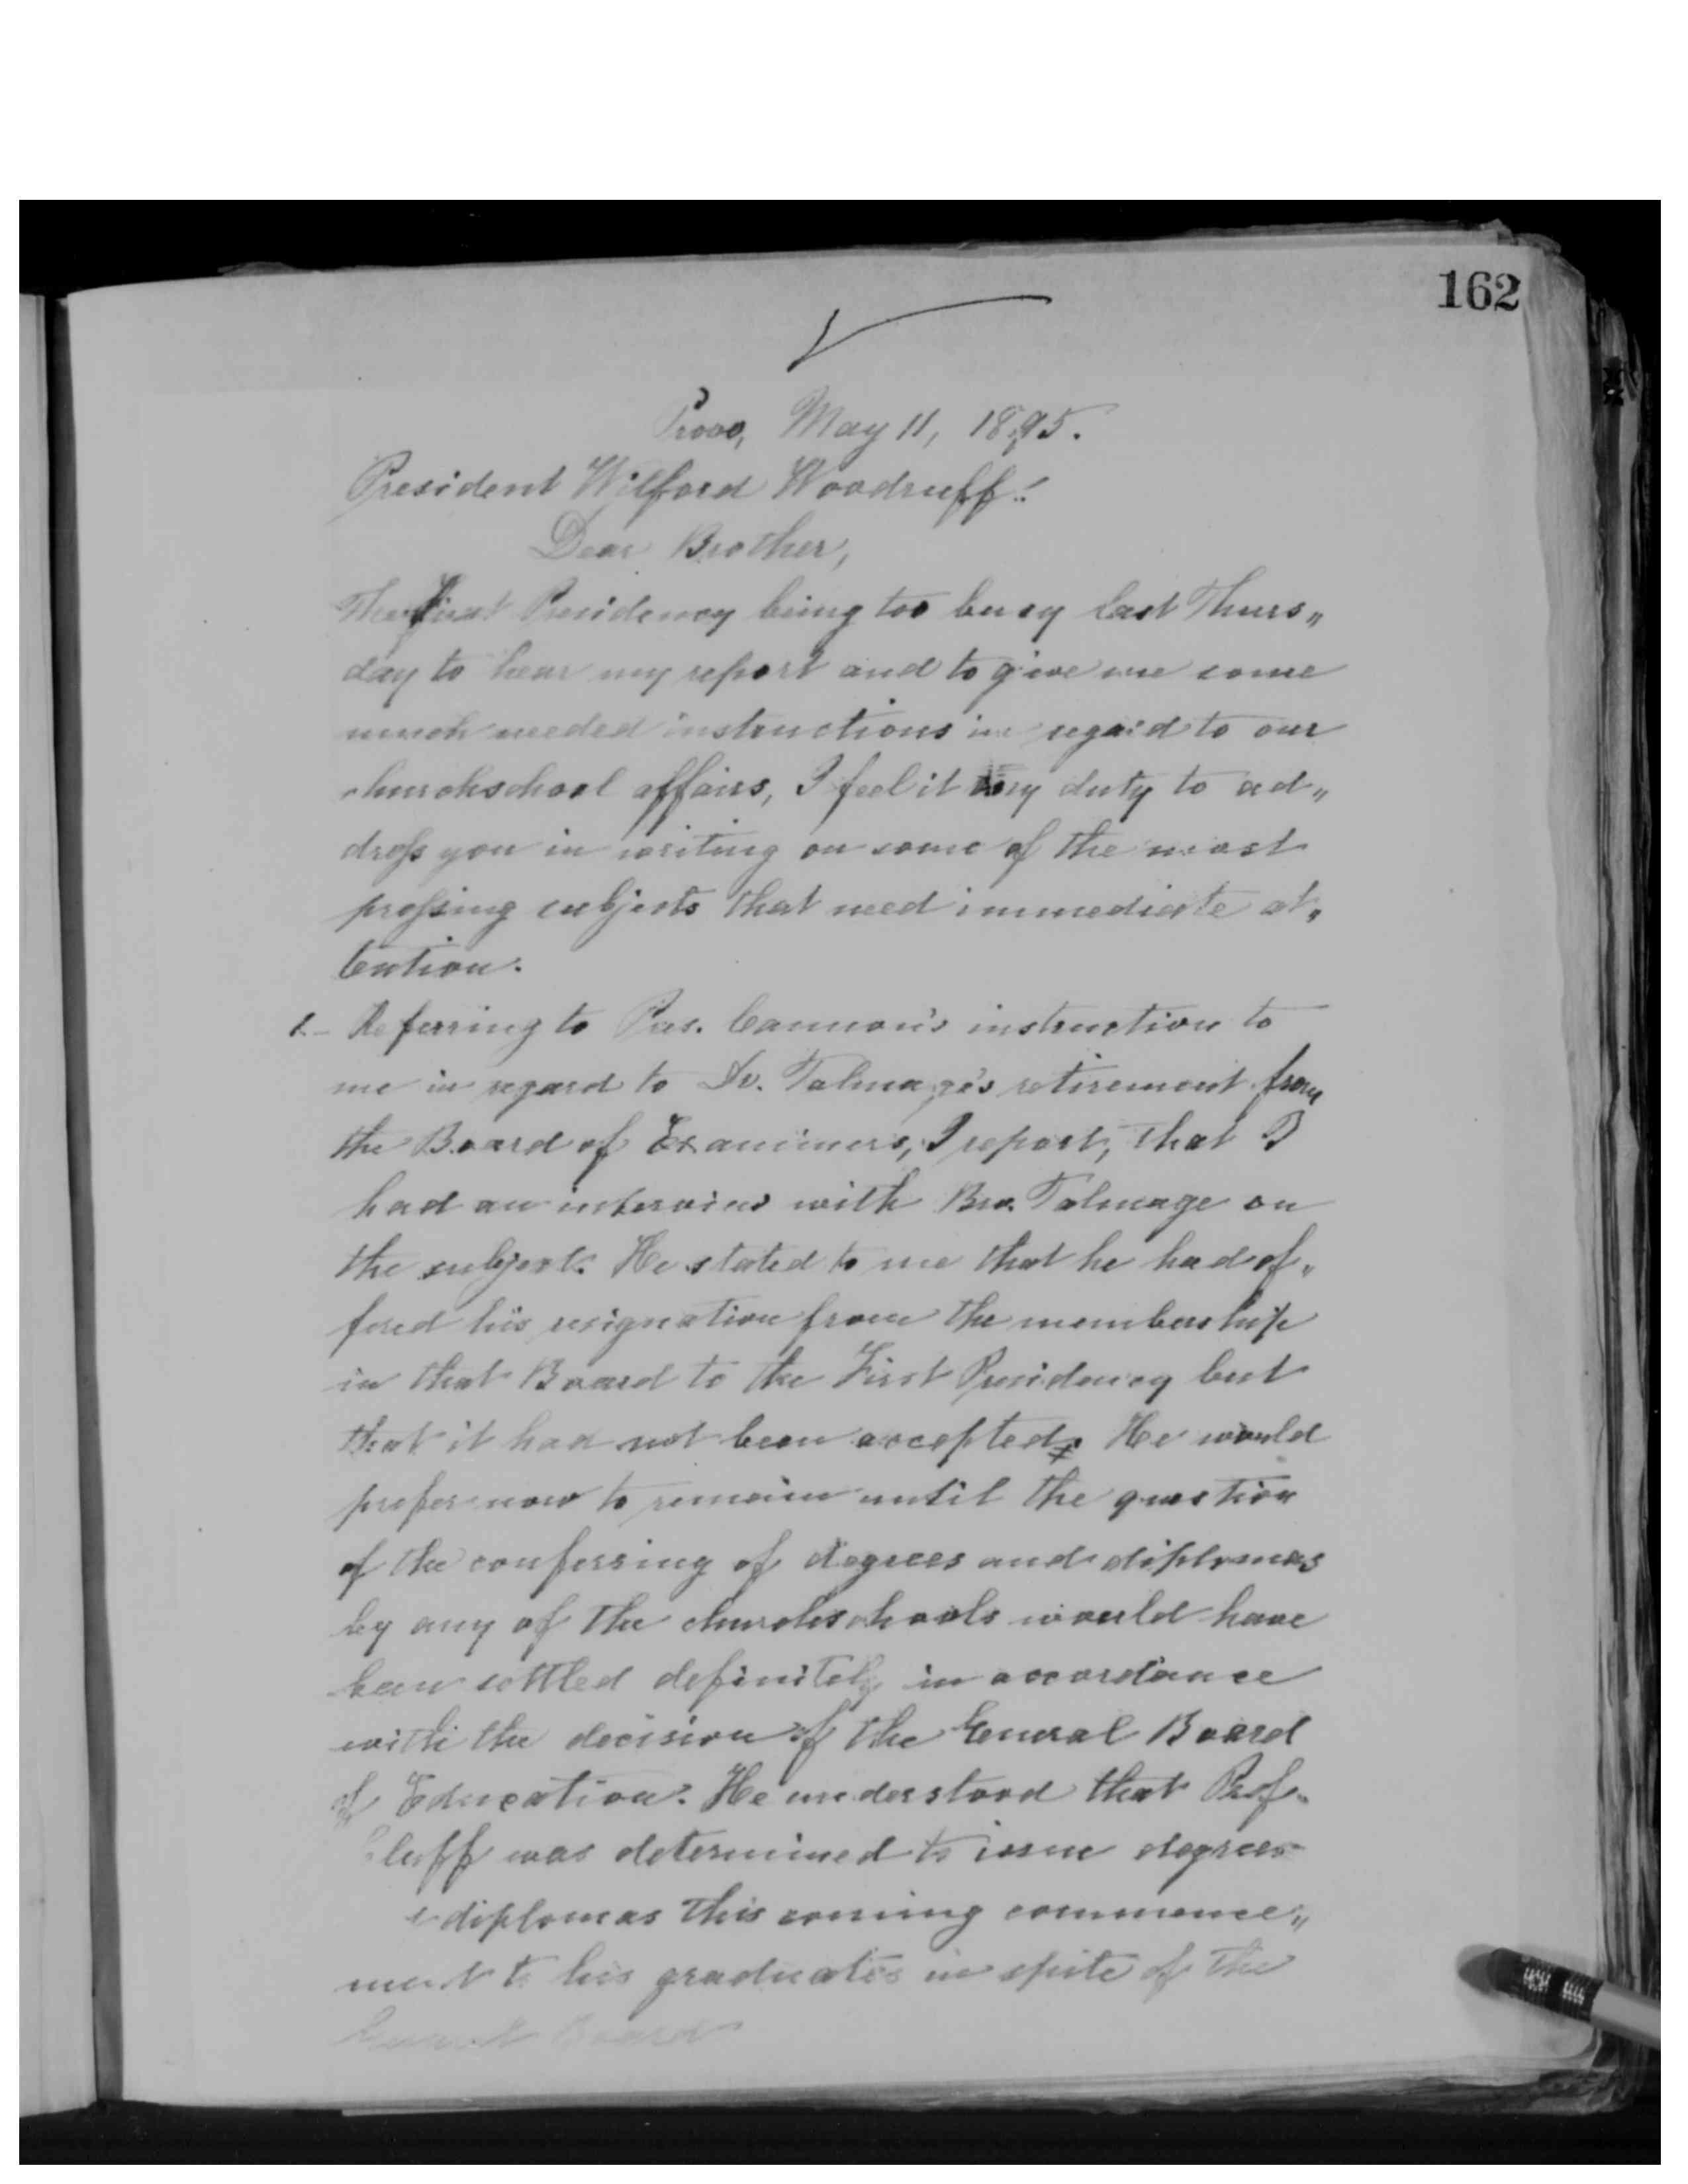 162
Provo, May 11, 1895.
President Wilford Woodruff!
Dear Brother,
The First Presidency being too busy last Thurs„
day to hear my report and to give me some
much needed instructions in regard to our
churchschool affairs, I feel it my duty to ad„
dress you in writing on some of the most
pressing subjects that need immediate at„
tention.
1.- Referring to Pres. Cannon's instruction to
me in regard to Dr. Talmage's retirement from
the Board of Examiners, I report, that I
had an interview with Bro. Talmage on
the subject. He stated to me that he had of„
fered his resignation from the membership
in that Board to the First Presidency but
that it had not been accepted. He would
prefer now to remain until the question
of the conferring of degrees and diplomas
by any of the churchschools would have
been settled definitely in accordance
with the decision of the General Board
of Education. He understood that Prof.
Cluff was determined to issue degrees
& diplomas this coming commence„
ment to his graduates in spite of the
General Board